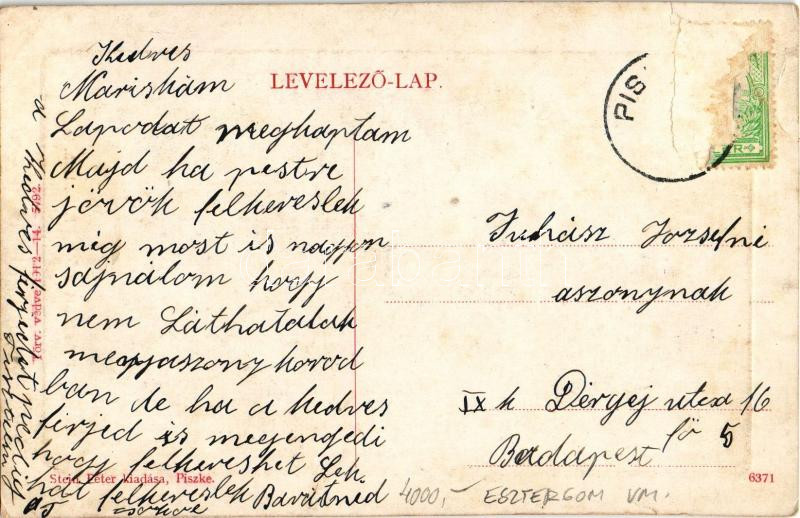 LEVELEZŐ-LAP.
Kedves
Mariskám
Lapodat meghaptam
Majd ha pestre
jövök felkereslek
még most is nagyon
sajnálom hogy
nem Láthatalak
menyaszony korod
ban de ha a kedves
férjed is megengedi
hogy felkereshet Lek
hát felkereslek Barátnéd
a Kedves férjedet pedig
Juhász Jozsefné
aszonynak
IX k Dérÿej utca 16
fö 5
Budapest
PIS
Törv. védve
Stein Péter kiadása, Piszke.
6371
4000,- ESZTERGOM VM.